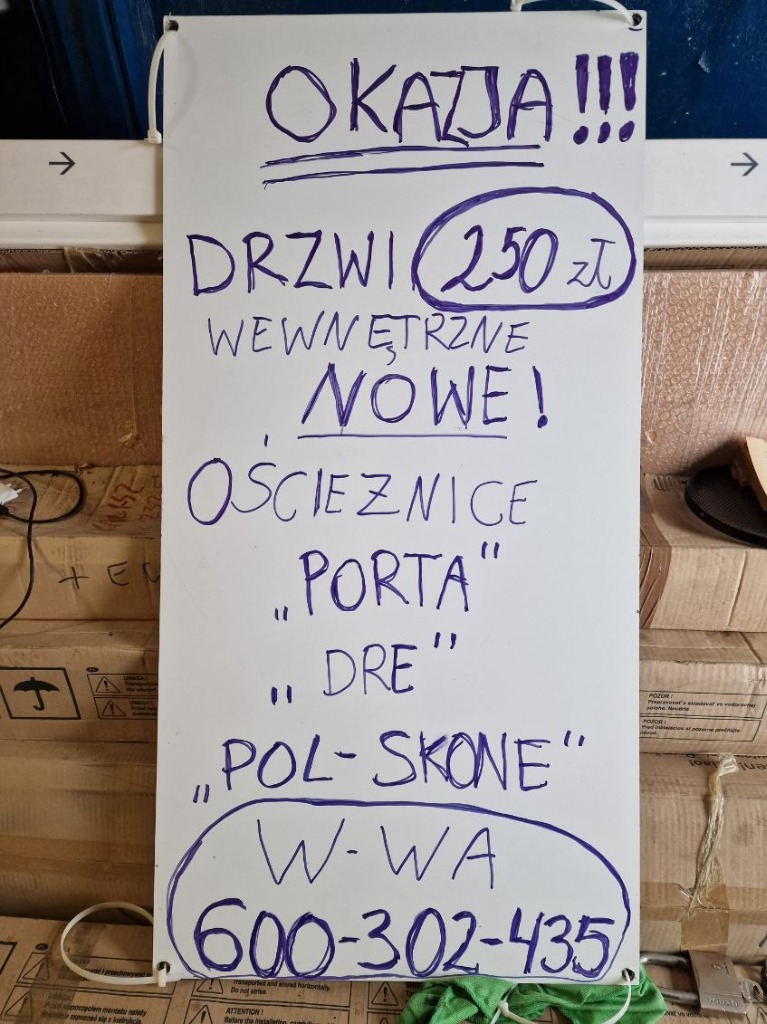 OKAZJA!!!
DRZWI 250 zł
WEWNĘTRZNE
NOWE!
OŚCIEZNICE
„PORTA"
„DRE"
„POL-SKONE"
W-WA
600-302-435
POZOR!
POZOR!